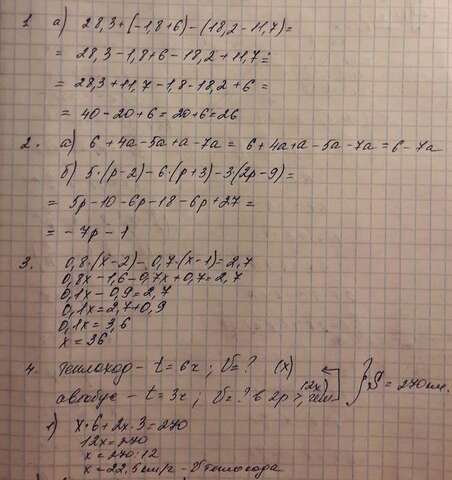 1 а) 28,3+(-1,8+6)-(18,2-11,7)=
= 28,3-1,8+6-18,2+11,7=
= 28,3+11,7-1,8-18,2+6=
= 40-20+6=20+6=26
2. а) 6+4a-5a+a-7a = 6+4a+a-5a-7a = 6-7a
б) 5·(p-2)-6·(p+3)-3(2p-9)=
= 5p-10-6p-18-6p+27=
= -7p-1
3. 0,8·(x-2)-0,7·(x-1)=2,7
0,8x-1,6-0,7x+0,7=2,7
0,1x-0,9=2,7
0,1x=2,7+0,9
0,1x=3,6
x=36
4. теплоход - t=6ч; V=? (x)
автобус - t=3ч; V=? в 2р >, чем (2x) } S=270км.
1) x·6+2x·3=270
12x=270
x=270:12
x=22,5км/ч - V теплохода